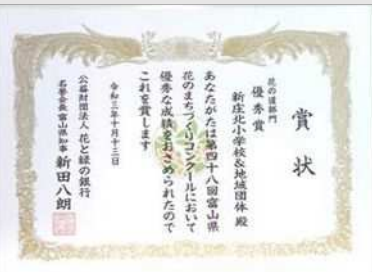 賞状
花の道部門
優秀賞
新庄北小学校&地域団体 殿
あなたがたは第四十八回富山県
花のまちづくりコンクールにおいて
優秀な成績をおさめられたので
これを賞します
令和三年十月十三日
公益財団法人 花と緑の銀行
名誉会長 富山県知事 新田八朗